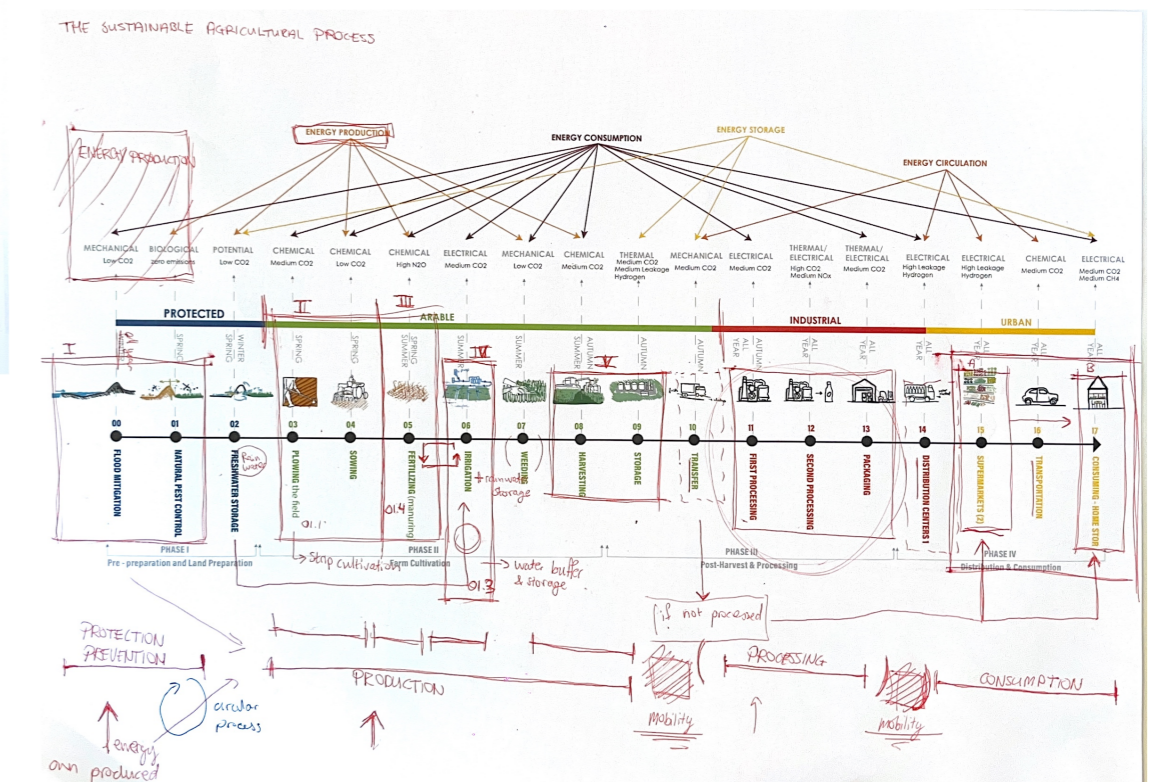 THE SUSTAINABLE AGRICULTURAL PROCESS
ENERGY PRODUCTION
ENERGY PRODUCTION
ENERGY CONSUMPTION
ENERGY STORAGE
ENERGY CIRCULATION
MECHANICAL
Low CO2
BIOLOGICAL
zero emissions
POTENTIAL
Low CO2
CHEMICAL
Medium CO2
CHEMICAL
Low CO2
CHEMICAL
High N2O
ELECTRICAL
Medium CO2
MECHANICAL
Low CO2
CHEMICAL
Medium CO2
THERMAL
Medium CO2
Medium Leakage
Hydrogen
MECHANICAL
Medium CO2
ELECTRICAL
Medium CO2
THERMAL/
ELECTRICAL
High CO2
Medium NOx
THERMAL/
ELECTRICAL
Medium CO2
ELECTRICAL
High Leakage
Hydrogen
ELECTRICAL
High Leakage
Hydrogen
CHEMICAL
Medium CO2
ELECTRICAL
Medium CO2
Medium CH4
PROTECTED
ARABLE
INDUSTRIAL
URBAN
I
II
III
IV
V
A
B
SPRING
WINTER
SPRING
SPRING
SPRING
SPRING
SUMMER
SUMMER
SUMMER
AUTUMN
SUMMER
AUTUMN
AUTUMN
ALL
YEAR
AUTUMN
ALL
YEAR
ALL
YEAR
ALL
YEAR
ALL
YEAR
ALL
YEAR
ALL
YEAR
00
FLOOD MITIGATION
01
NATURAL PEST CONTROL
02
FRESHWATER STORAGE
Rain
water
03
PLOWING the field
01.1
04
SOWING
01.4
05
FERTILIZING (manuring
06
IRRIGATION
01.3
07
WEEDING
+ rainwater
storage
08
HARVESTING
09
STORAGE
10
TRANSFER
11
FIRST PROCEESING
12
SECOND PROCESSING
13
PACKAGING
14
DISTRIBUTION CENTERS1
15
SUPERMARKETS (2)
16
TRANSPORTATION
17
CONSUMING - HOME STOR
PHASE I
Pre - preparation and Land Preparation
PHASE II
Farm Cultivation
PHASE III
Post-Harvest & Processing
PHASE IV
Distribution & Consumption
→ Strip cultivation
→ water buffer
& storage
(if not processed
PROTECTION
PREVENTION
PRODUCTION
PROCESSING
CONSUMPTION
Mobility
Mobility
circular
process
energy
own produced